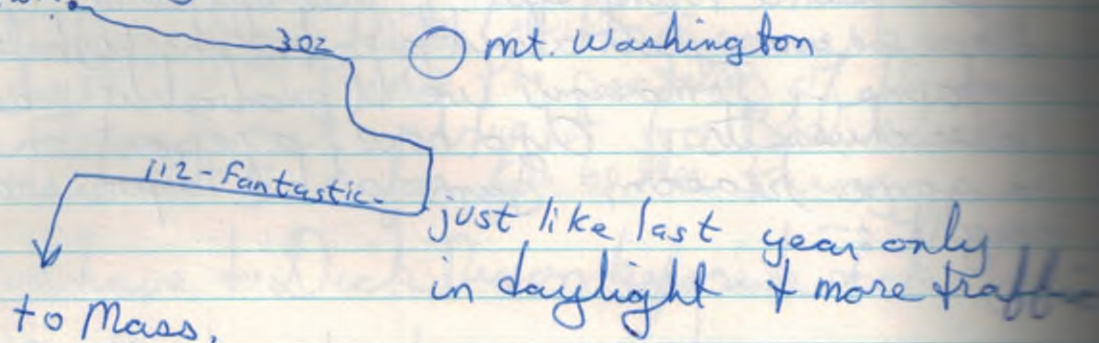 302
mt. Washington
112 - Fantastic -
just like last year only
in daylight + more traffic
to Mass.